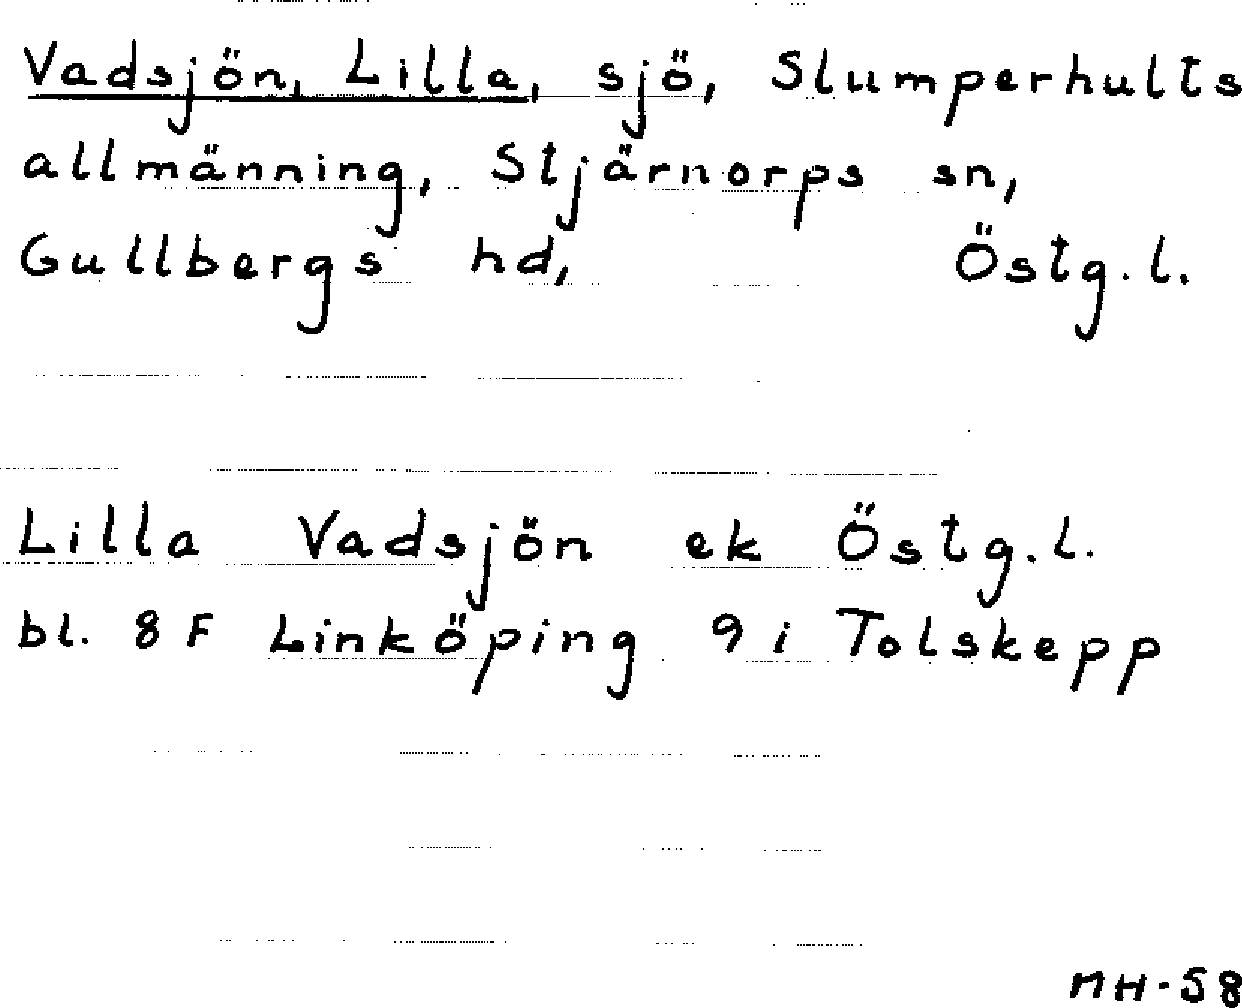 Vadsjön, Lilla, sjö, Slumperhults
allmänning, Stjärnorps sn,
Gullbergs hd, Östg.l.
Lilla Vadsjön ek Östg.l.
bl. 8 F Linköping 9 i Tolskepp
MH-58